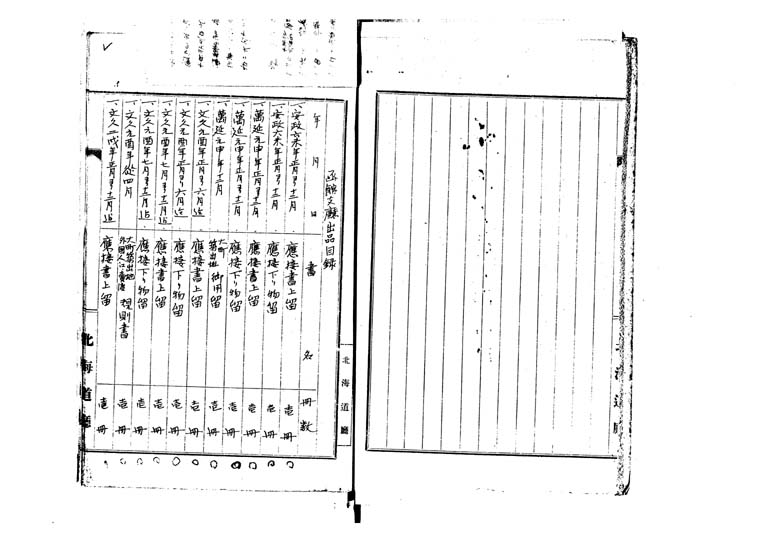 函館支廳出品目録
年月日 書名 冊数
一、安政六未年正月ヨリ十二月 應接書上留 壱冊
一、安政六未年正月ヨリ十二月 應接下り物留 壱冊
一、萬延元申年正月ヨリ十二月 應接書上留 壱冊
一、萬延元申年正月ヨリ十二月 應接下り物留 壱冊
一、萬延元申年十二月 大町築出地御用留 壱冊
一、文久元酉年正月ヨリ六月迄 應接書上留 壱冊
一、文久元酉年正月ヨリ六月迄 應接下り物留 壱冊
一、文久元酉年七月ヨリ十二月迄 應接書上留 壱冊
一、文久元酉年七月ヨリ十二月迄 應接下り物留 壱冊
一、文久元酉年従四月 大町築出地外国人江貸渡規則書 壱冊
一、文久二戌年正月ヨリ十二月迄 應接書上留 壱冊
北海道廳
北海道廳